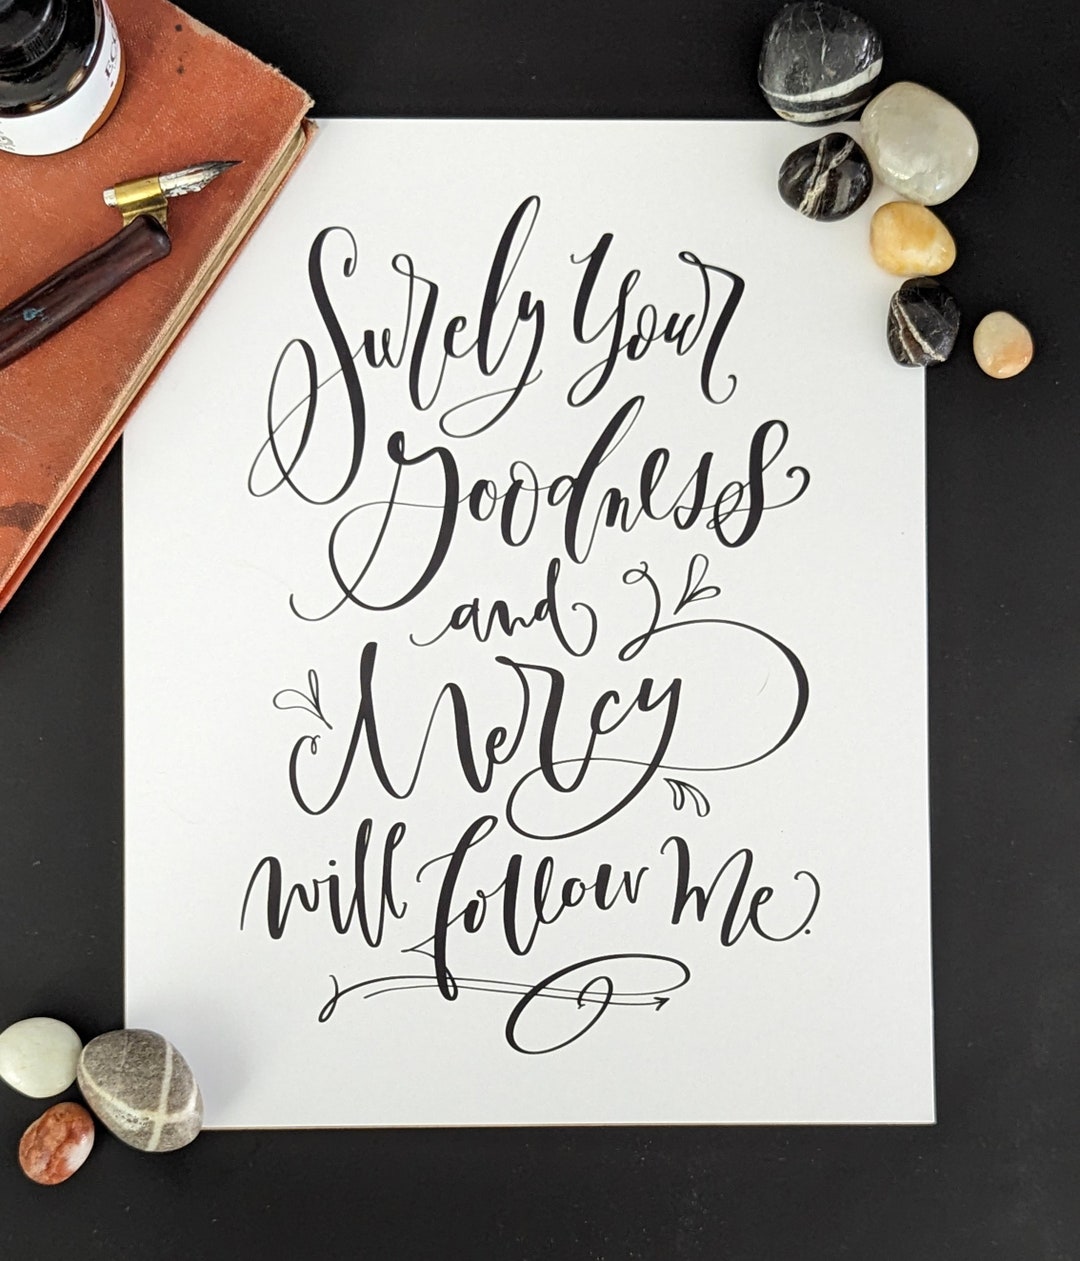 Surely Your
Goodness
and
Mercy
will follow Me.